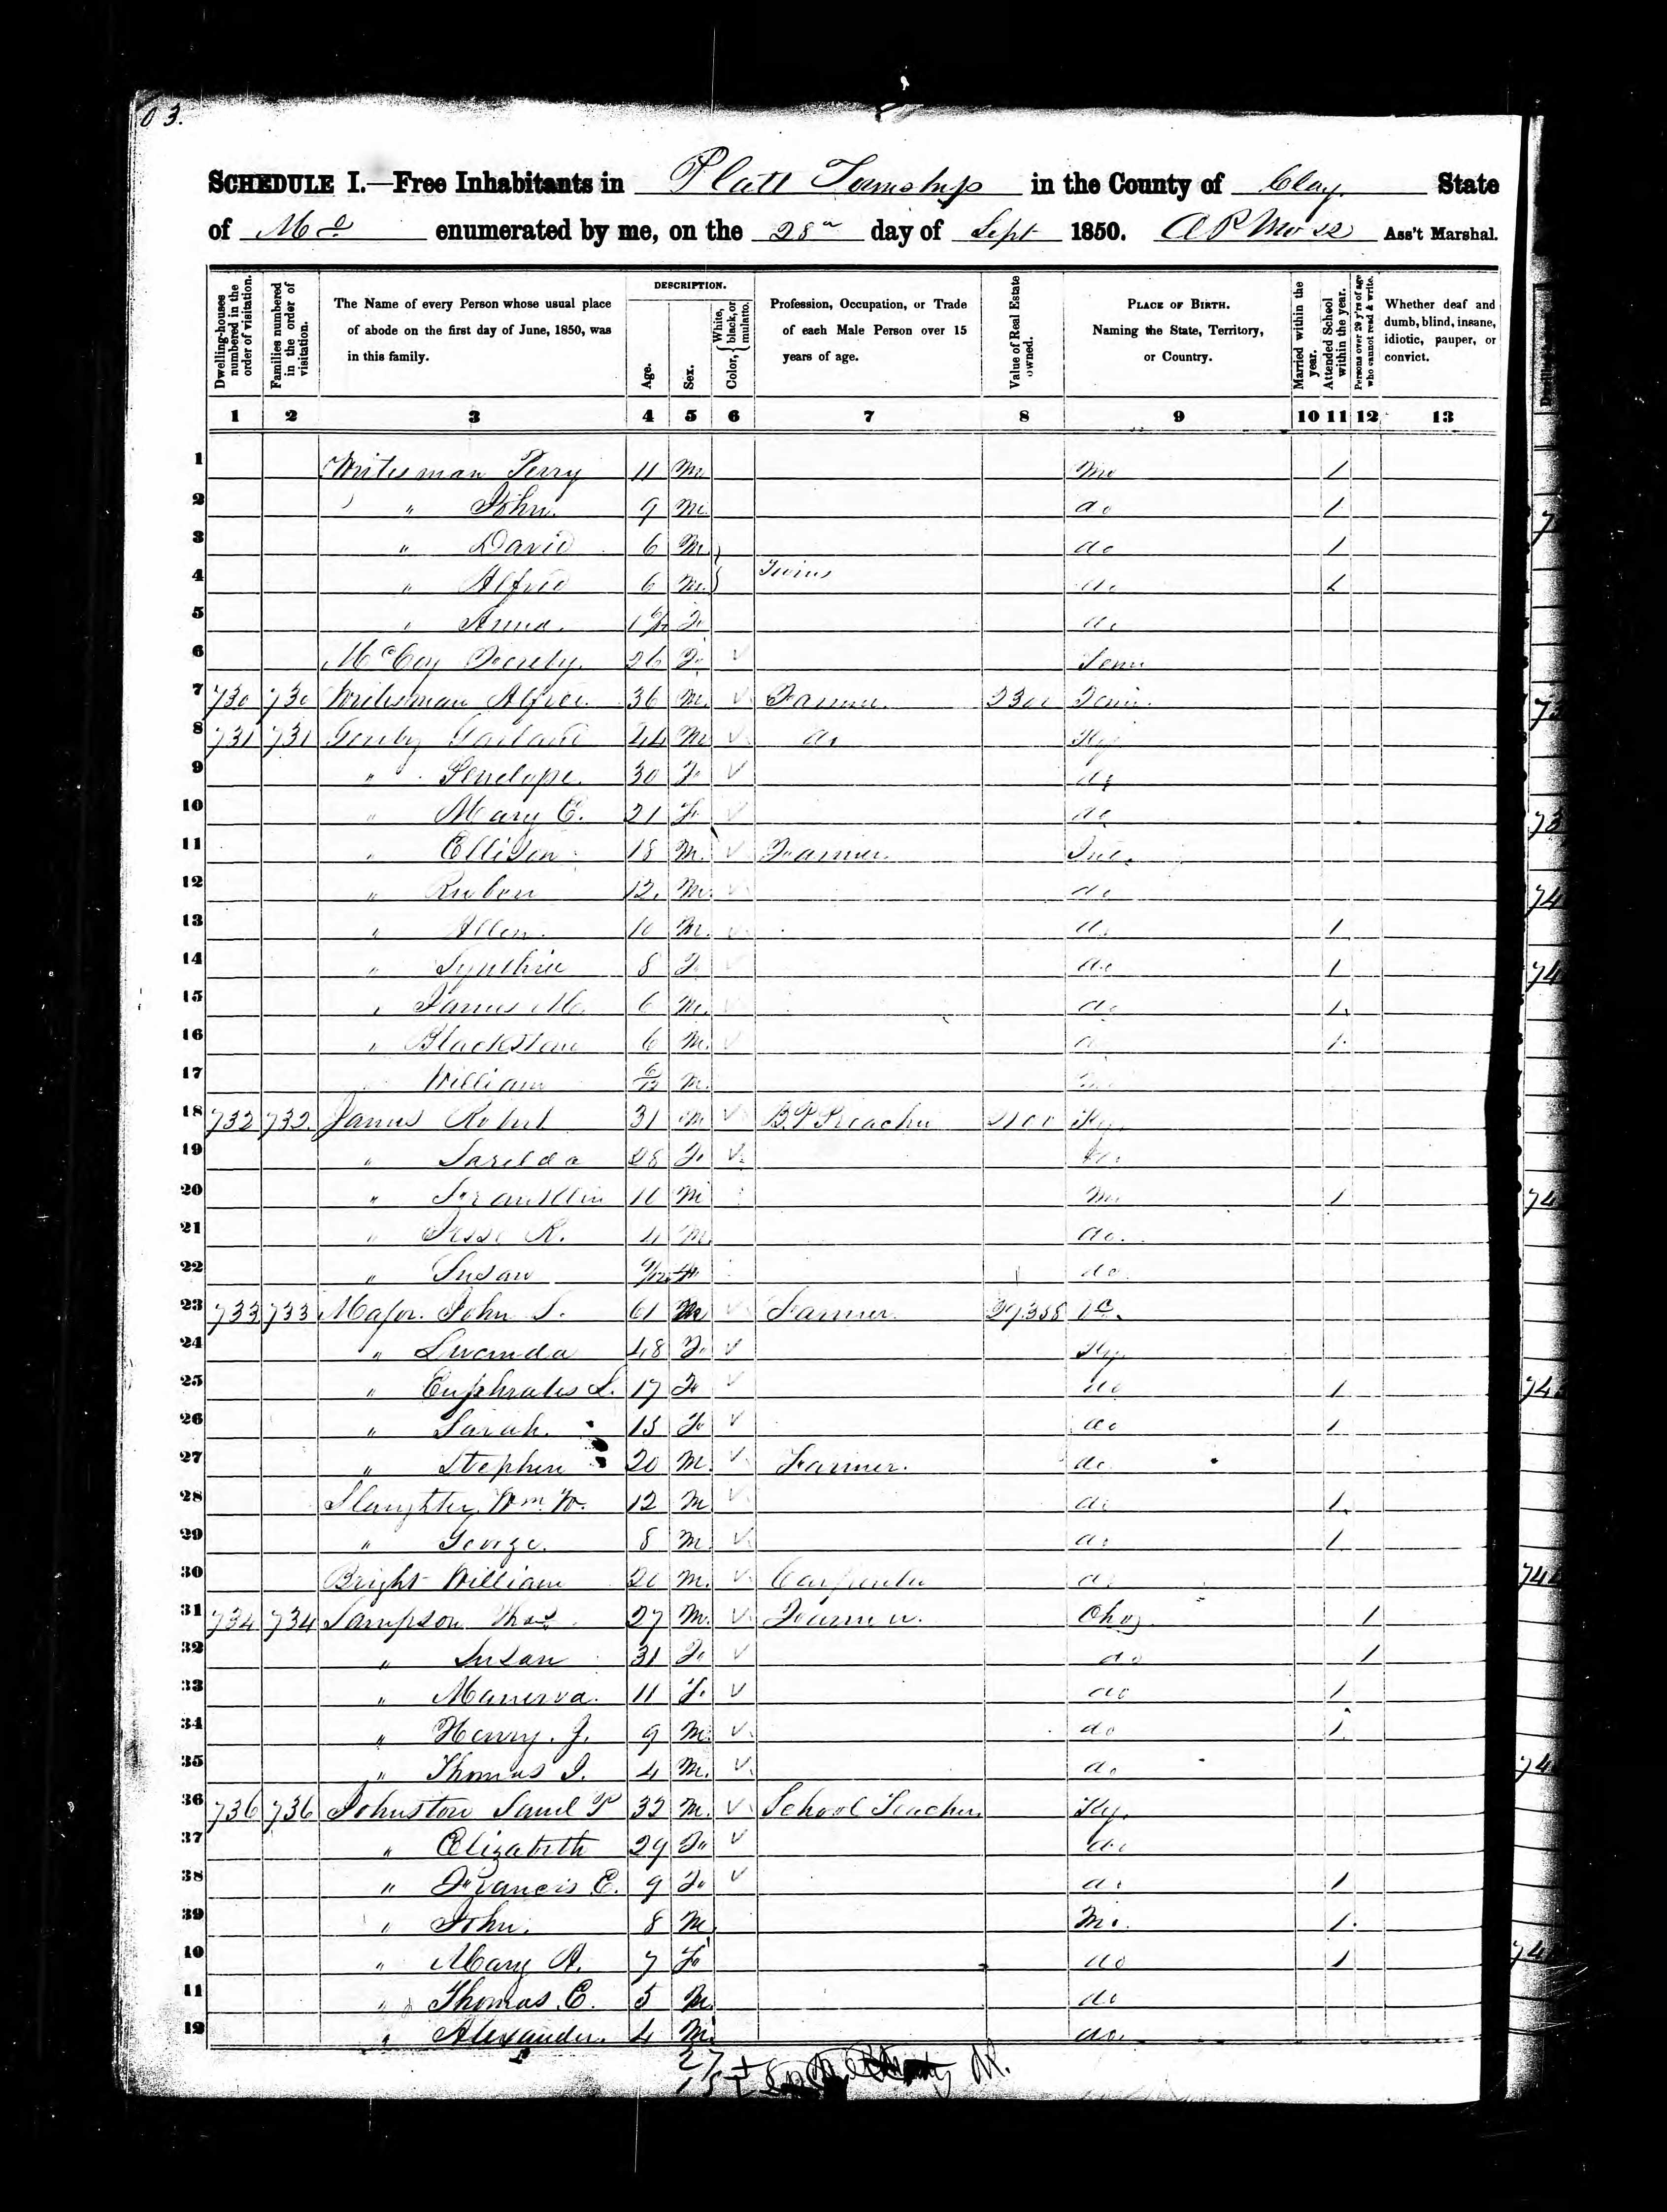 03.
SCHEDULE I.—Free Inhabitants in Platt Township in the County of Clay State
of Mo enumerated by me, on the 28th day of Sept 1850. Ass't Marshal.
Dwelling-houses numbered in the order of visitation.
Families numbered in the order of visitation.
The Name of every Person whose usual place of abode on the first day of June, 1850, was in this family.
DESCRIPTION.
Age.
Sex.
Color, { White, black, or mulatto.
Profession, Occupation, or Trade of each Male Person over 15 years of age.
Value of Real Estate owned.
PLACE OF BIRTH. Naming the State, Territory, or Country.
Married within the year.
Attended School within the year.
Persons over 20 y'rs of age who cannot read & write.
Whether deaf and dumb, blind, insane, idiotic, pauper, or convict.
1 2 3 4 5 6 7 8 9 10 11 12 13
1 Perry 11 M Mo 1
2 " John 9 M do 1
3 " David 6 M do 1
4 " Alfred 6 M Twins do 1
5 " Anna F do
6 McCoy 26 F Tenn
7 730 730 36 M Farmer 2300 Tenn
8 731 731 44 M do Ky
9 " Penelope 30 F do
10 " Mary E. 21 F do
11 " Ellison 18 M Farmer
12 " Ruben 12 M do
13 " Allen 10 M do 1
14 " Synthie 8 F do 1
15 " James M. 6 M do 1
16 " Blackstone 6 M do 1
17 William 6/12 M
18 732 732 James Robert 31 M B.P Preacher 2100 Ky
19 " Sarelda 28 F do
20 " Franklin 10 M Mo 1
21 " Jesse R. 4 M do
22 " Susan F do
23 733 733 Major John S. 61 M Farmer
24 " Lucinda 48 F Ky
25 " Euphrates L. 17 F do 1
26 " Sarah 15 F do 1
27 " Stephen 20 M Farmer. do
28 Slaughter Wm. W. 12 M do 1
29 " George 8 M do 1
30 Bright William 20 M Carpenter do
31 734 734 Sampson Thos 27 M Farmer Ohio 1
32 " Susan 31 F do 1
33 " Manerva 11 F do 1
34 " Henry J. 9 M do 1
35 " Thomas J. 4 M do
36 736 736 Johnston Saml P 32 M School Teacher Ky.
37 " Elizabeth 29 F do
38 " Francis E. 9 F do 1
39 " John 8 M Mo. 1
10 " Mary A. 7 F do 1
11 " Thomas E. 5 M do
12 " Alexander 4 M do
27
15